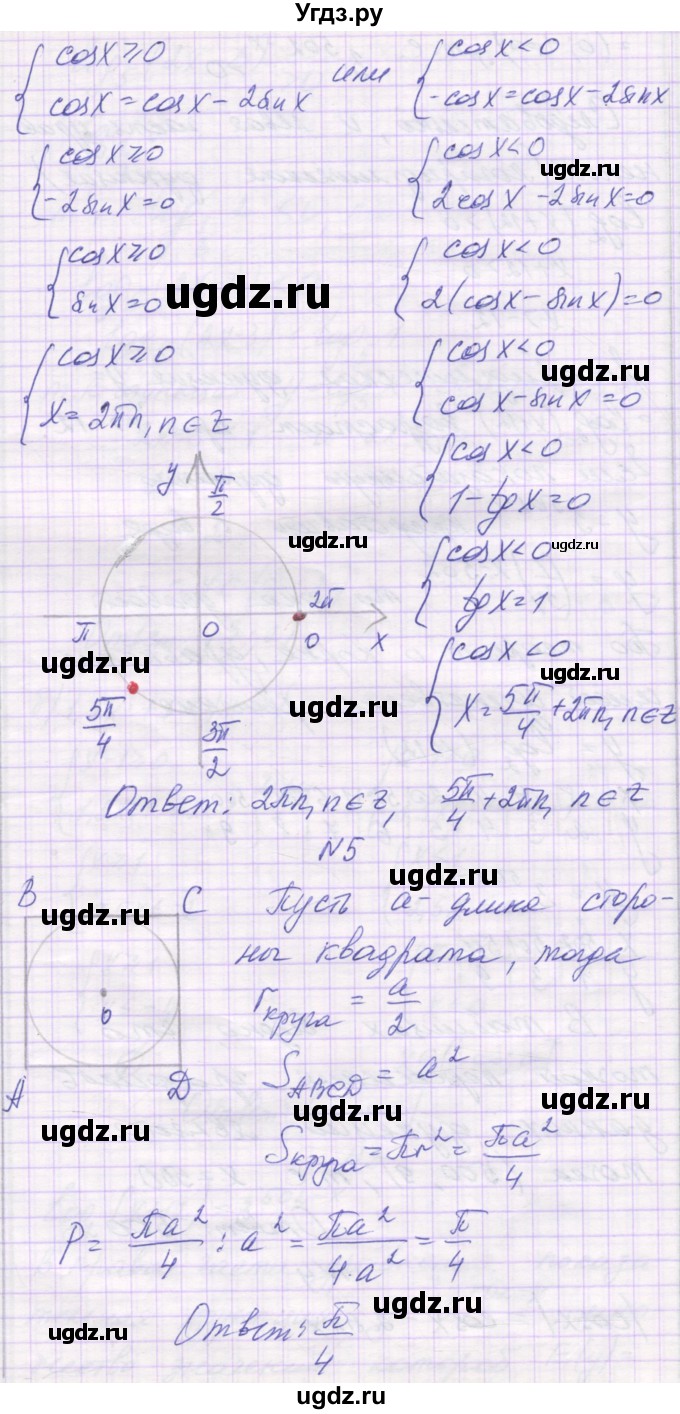 Угдз.ру
cosx ≥ 0
cosx = cosx - 2sinx
или
cosx < 0
-cosx = cosx - 2sinx
cosx ≥ 0
-2sinx = 0
cosx < 0
2cosx - 2sinx = 0
ugdz.ru
cosx ≥ 0
sinx = 0
ugdz.ru
cosx < 0
2(cosx - sinx) = 0
cosx ≥ 0
x = 2πn, n ∈ Z
cosx < 0
cosx - sinx = 0
ugdz.ru
cosx < 0
1 - tgx = 0
cosx < 0
tgx = 1
ugdz.ru
cosx < 0
x = 5π/4 + 2πn, n ∈ Z
ugdz.ru
y
π/2
ugdz.ru
π
0
2π
0
x
ugdz.ru
5π/4
3π/2
ugdz.ru
Ответ: 2πn, n ∈ Z, 5π/4 + 2πn, n ∈ Z
N5
ugdz.ru
B
C
ugdz.ru
0
A
D
ugdz.ru
Пусть a - длина сторо-
ны квадрата, тогда
rкруга = a/2
ugdz.ru
SABCD = a²
ugdz.ru
Sкруга = πr² = πa²/4
ugdz.ru
P = πa²/4 : a² = πa²/4·a² = π/4
ugdz.ru
ugdz.ru
Ответ: π/4
ugdz.ru